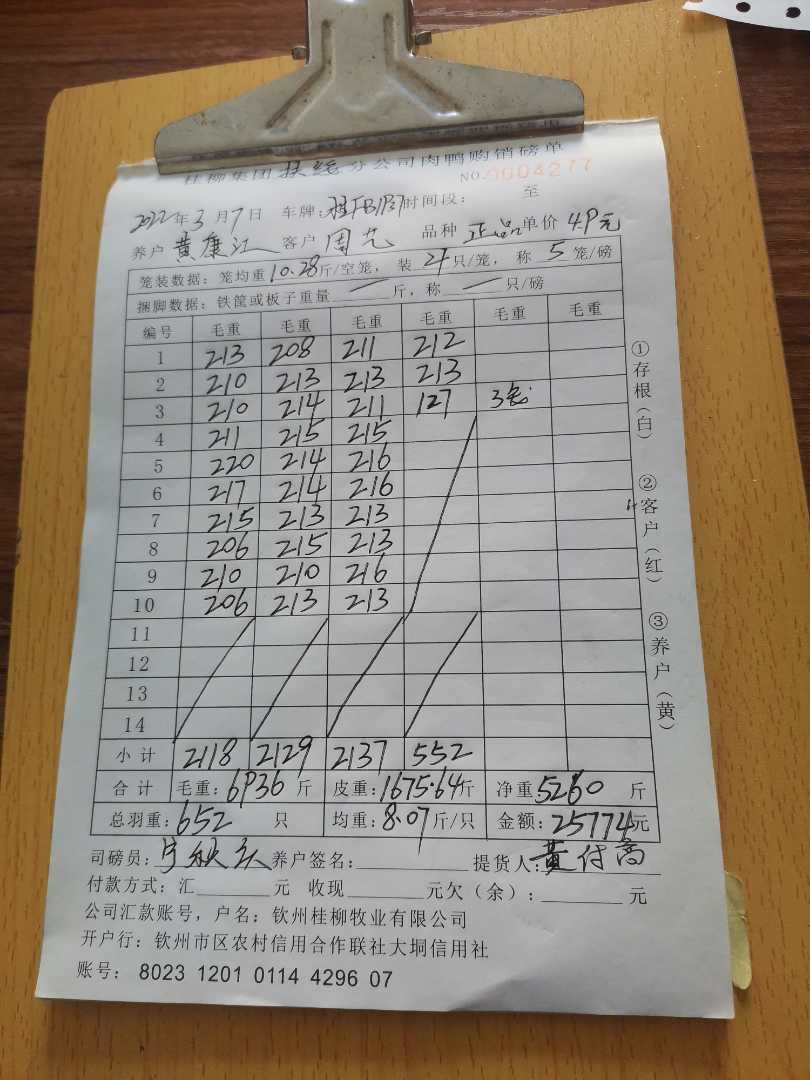 桂柳集团扶绥分公司肉鸭购销磅单
NO.0004277
2022年3月7日 车牌:桂FB1P37时间段: 至
养户黄康江 客户周艺 品种正品单价4.9元
笼装数据:笼均重10.28斤/空笼,装4只/笼,称5笼/磅
捆脚数据:铁筐或板子重量一斤,称一只/磅
编号 毛重 毛重 毛重 毛重 毛重 毛重
1 213 208 211 212
2 210 213 213 213
3 210 214 211 127 3笼
4 211 215 215
5 220 214 216
6 217 214 216
7 215 213 213
8 206 215 213
9 210 210 216
10 206 213 213
11
12
13
14
小计 2118 2129 2137 552
合计 毛重:6936斤 皮重:1675.64斤 净重:5260斤
总羽重:652只 均重:8.07斤/只 金额:25774元
司磅员: 养户签名: 提货人:黄付高
付款方式:汇 元 收现 元欠(余): 元
公司汇款账号,户名:钦州桂柳牧业有限公司
开户行:钦州市区农村信用合作联社大垌信用社
账号: 8023 1201 0114 4296 07
①存根(白) ②客户(红) ③养户(黄)